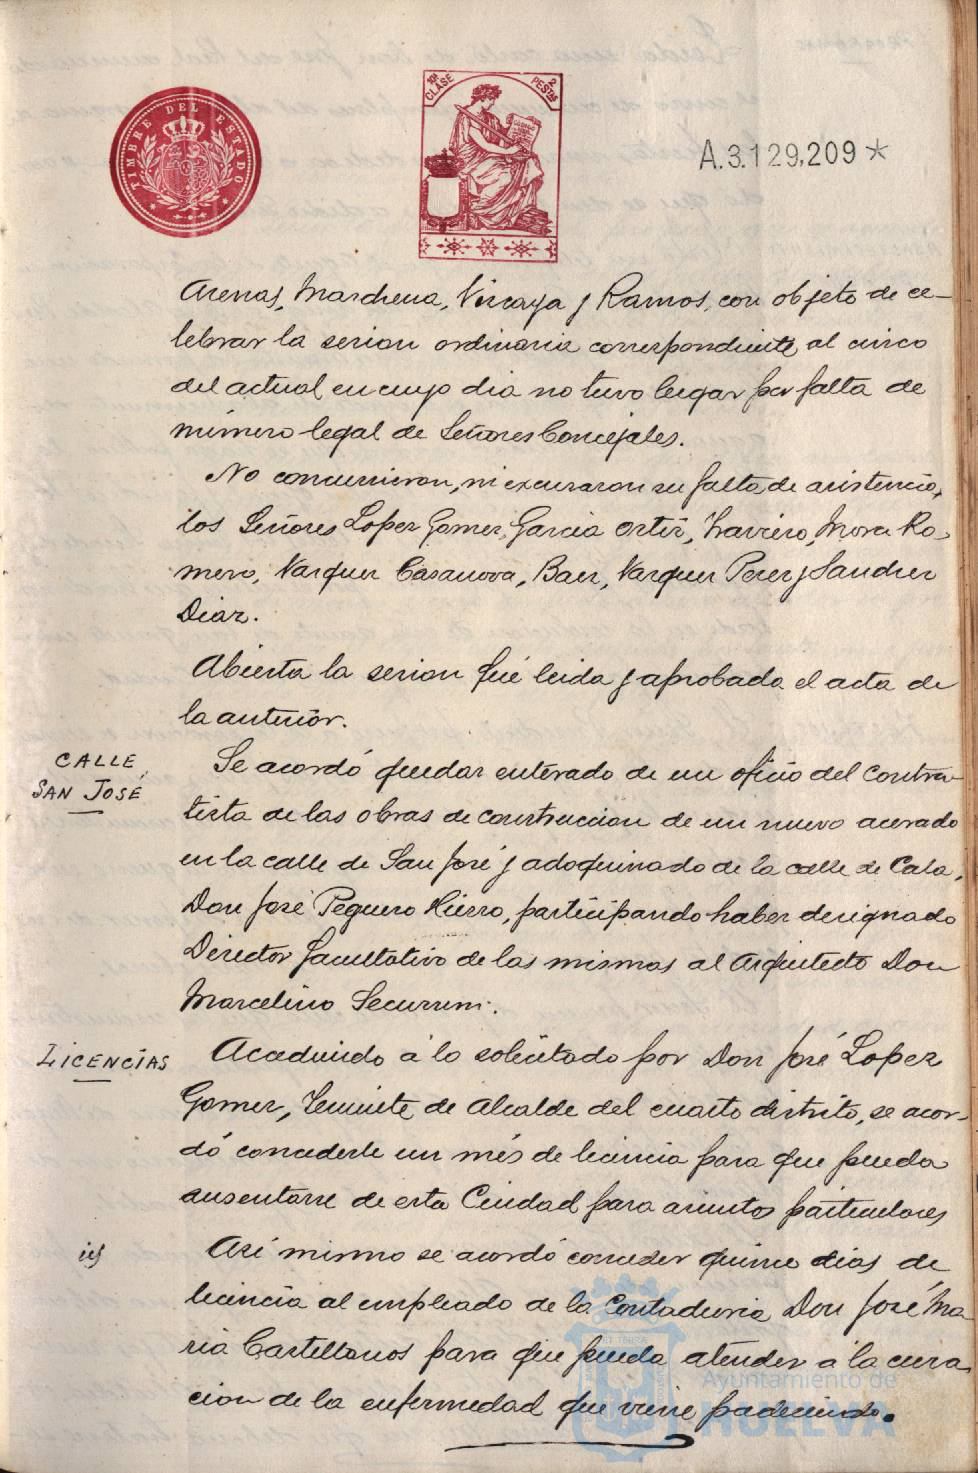 TIMBRE DEL ESTADO
10ª CLASE 2 PESETAS
A.3.129,209 *
Arenas, Marchena, Vizcaya y Ramos, con objeto de ce-
lebrar la sesion ordinaria correspondiente al cinco
del actual en cuyo dia no tuvo lugar por falta de
número legal de Señores Concejales.
No concurrieron, ni excusaron su falta de asistencia,
los Señores Lopez Gomez, Garcia Ortiz, Mora Ro-
mero, Vazquez Casanova, Baez, Vazquez Perez y Sanchez
Diaz.
Abierta la sesion fué leida y aprobada el acta de
la anterior.
CALLE
SAN JOSÉ
Se acordó quedar enterado de un oficio del contra-
tista de las obras de construccion de un nuevo acerado
en la calle de San José y adoquinado de la calle de Cala,
Don José Peguero Hierro, participando haber designado
Director facultativo de las mismas al Arquitecto Don
Marcelino
LICENCIAS
Accediendo á lo solicitado por Don José Lopez
Gomez, Teniente de Alcalde del cuarto distrito, se acor-
dó concederle un més de licencia para que pueda
ausentarse de esta Ciudad para asuntos particulares
id
Así mismo se acordó conceder quince dias de
licencia al empleado de la Contaduria Don José Ma-
ria Castellanos para que pueda atender á la cura-
cion de la enfermedad que viene padeciendo.
Ayuntamiento de
HUELVA